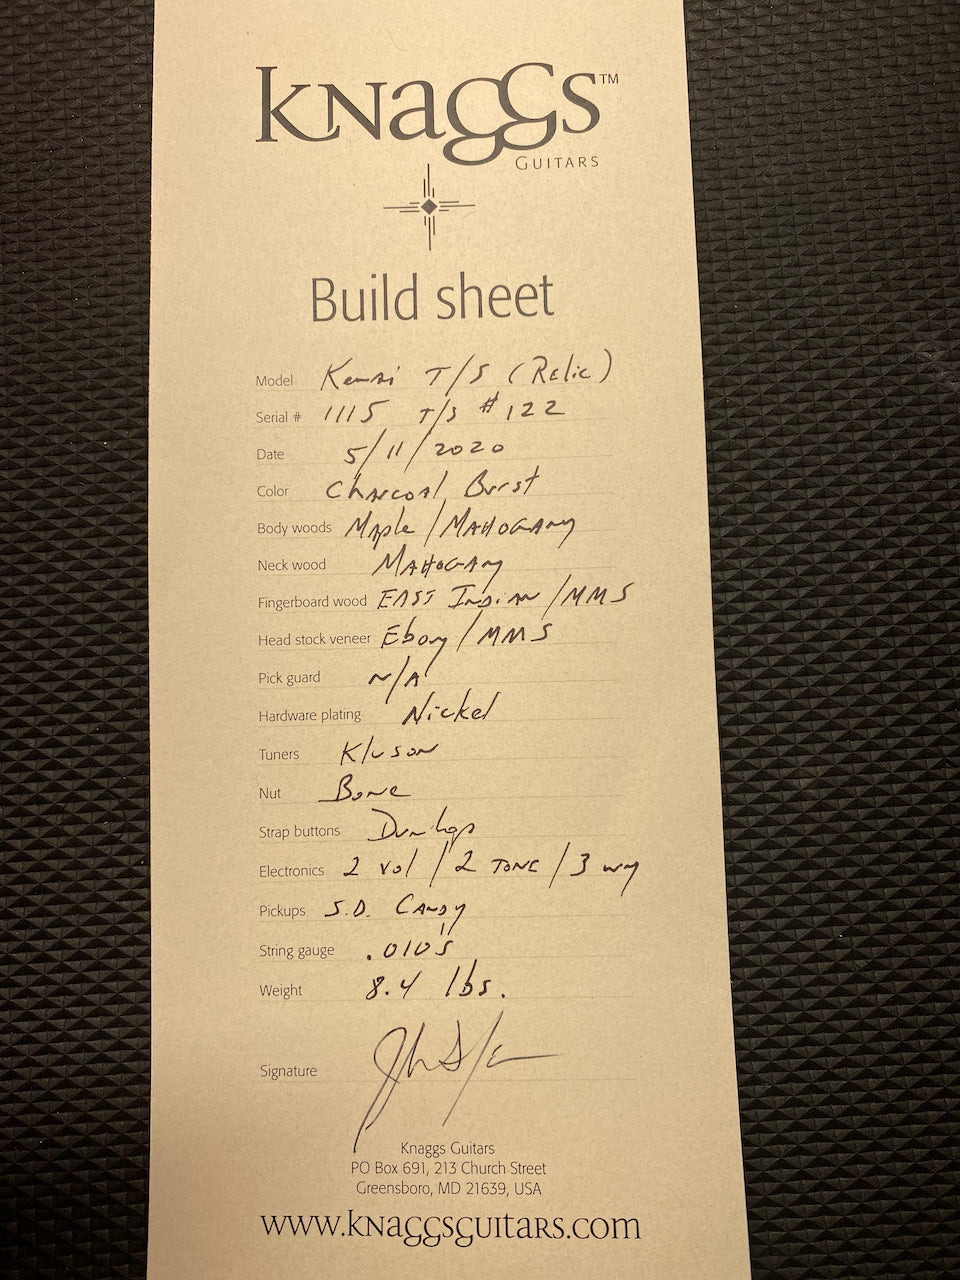 KNAGGS™
GUITARS
Build sheet
Model Kenai T/S (Relic)
Serial # 1115 T/S #122
Date 5/11/2020
Color Charcoal Burst
Body woods Maple/Mahogany
Neck wood Mahogany
Fingerboard wood EAST Indian/MMS
Head stock veneer Ebony/MMS
Pick guard N/A
Hardware plating Nickel
Tuners Kluson
Nut Bone
Strap buttons Dunlop
Electronics 2 Vol / 2 TONE / 3 wy
Pickups S.D. Candy
String gauge .010"s
Weight 8.4 lbs.
Signature
Knaggs Guitars
PO Box 691, 213 Church Street
Greensboro, MD 21639, USA
www.knaggsguitars.com